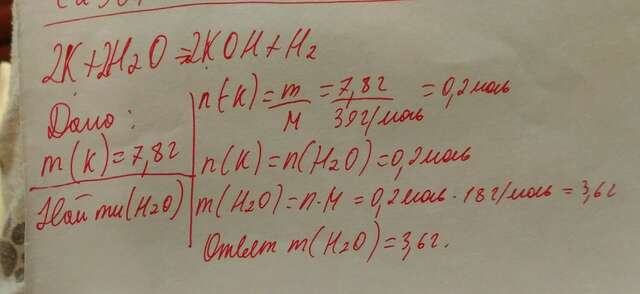 2K + 2H2O = 2KOH + H2
Дано:
m(K) = 7,8г
Найти m(H2O)
n(K) = m/M = 7,8г/39г/моль = 0,2моль
n(K) = n(H2O) = 0,2моль
m(H2O) = n·M = 0,2моль · 18г/моль = 3,6г
Ответ m(H2O) = 3,6г.